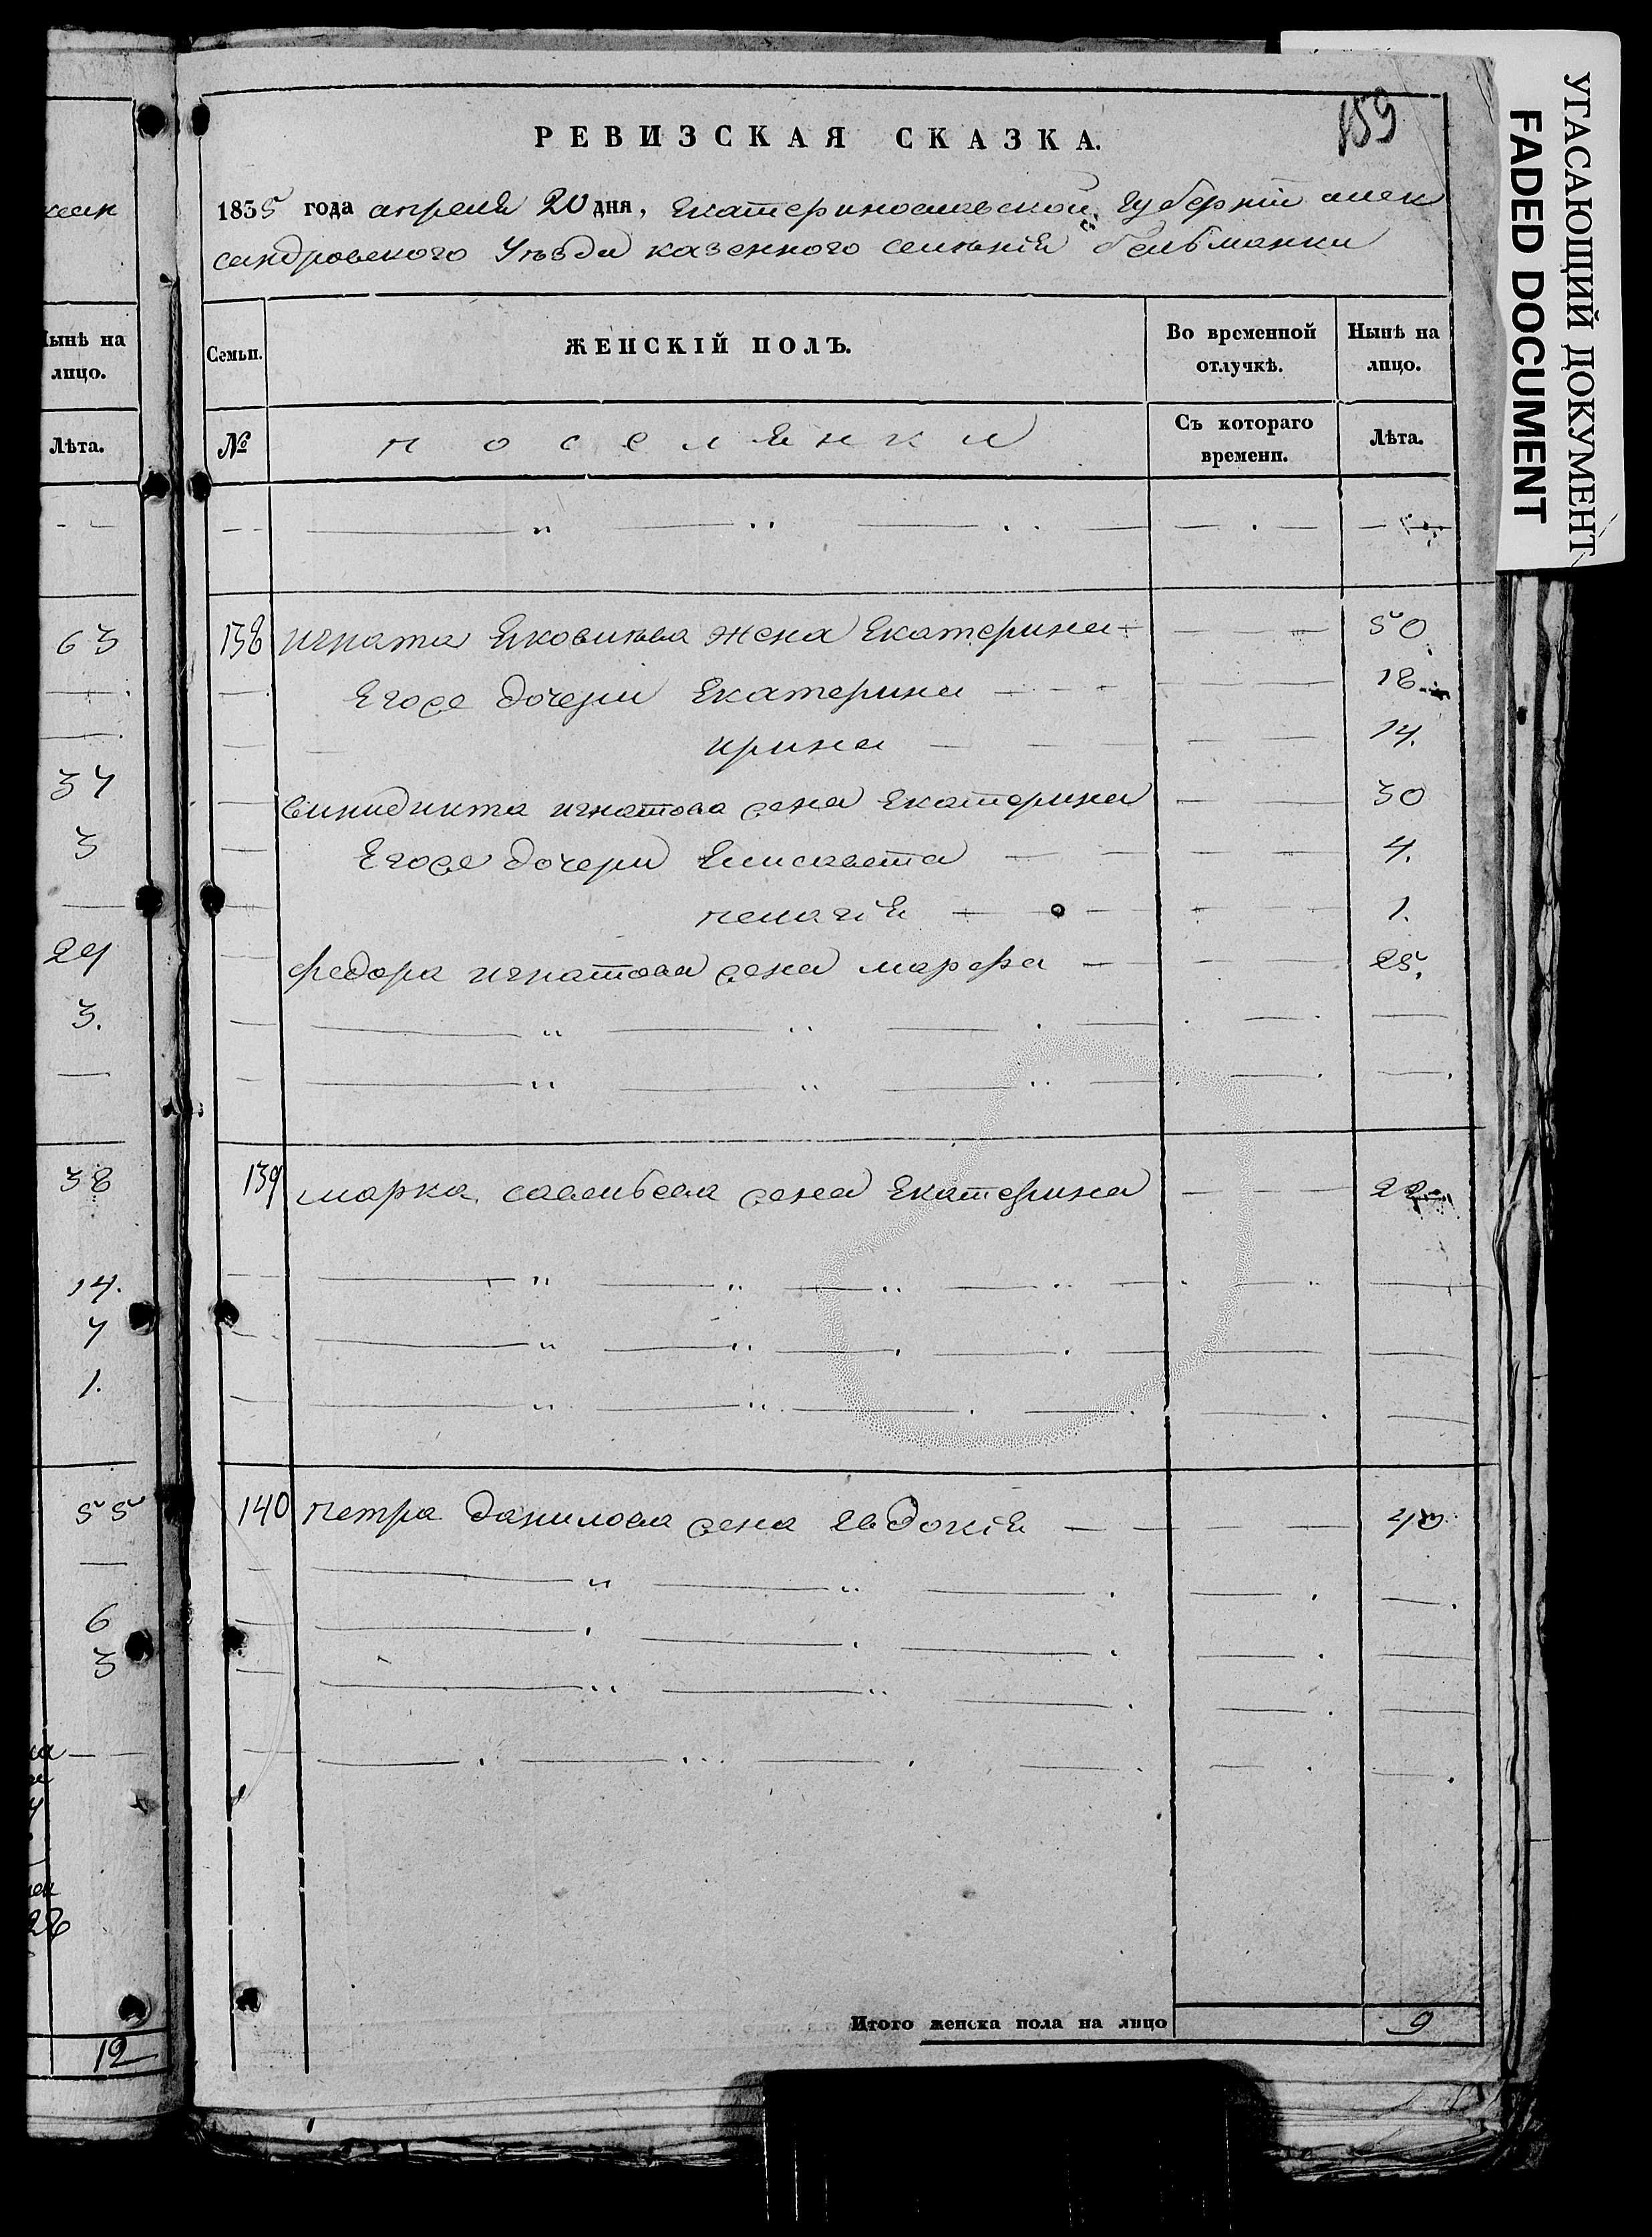 кеик
Нынѣ на
лицо.
Лѣта.
63
34
3
29
3.
38
14.
7
1.
55
6
3
28
12
159
РЕВИЗСКАЯ СКАЗКА.
1835 года апреля 20 дня, Екатеринославской Губернии алек
сандровского Уѣзда казенного селѣния Бельманки
Семьи. ЖЕНСКІЙ ПОЛЪ. Во временной отлучкѣ. Нынѣ на лицо.
№ поселянки Съ котораго времени. Лѣта.
138 игната Яковлѣва жена Екатерина 50
Егоже дочери Екатерина 18
ирина 14.
винидикта игнатова жена Екатерина 30
Егоже дочери Елисавета 4.
пелагія 1.
федора игнатова жена марфа 25.
139 марка савельева жена Екатерина 22
140 петра данилова жена Евдокія 40
Итого женска пола на лицо 9
УГАСАЮЩИЙ ДОКУМЕНТ
FADED DOCUMENT